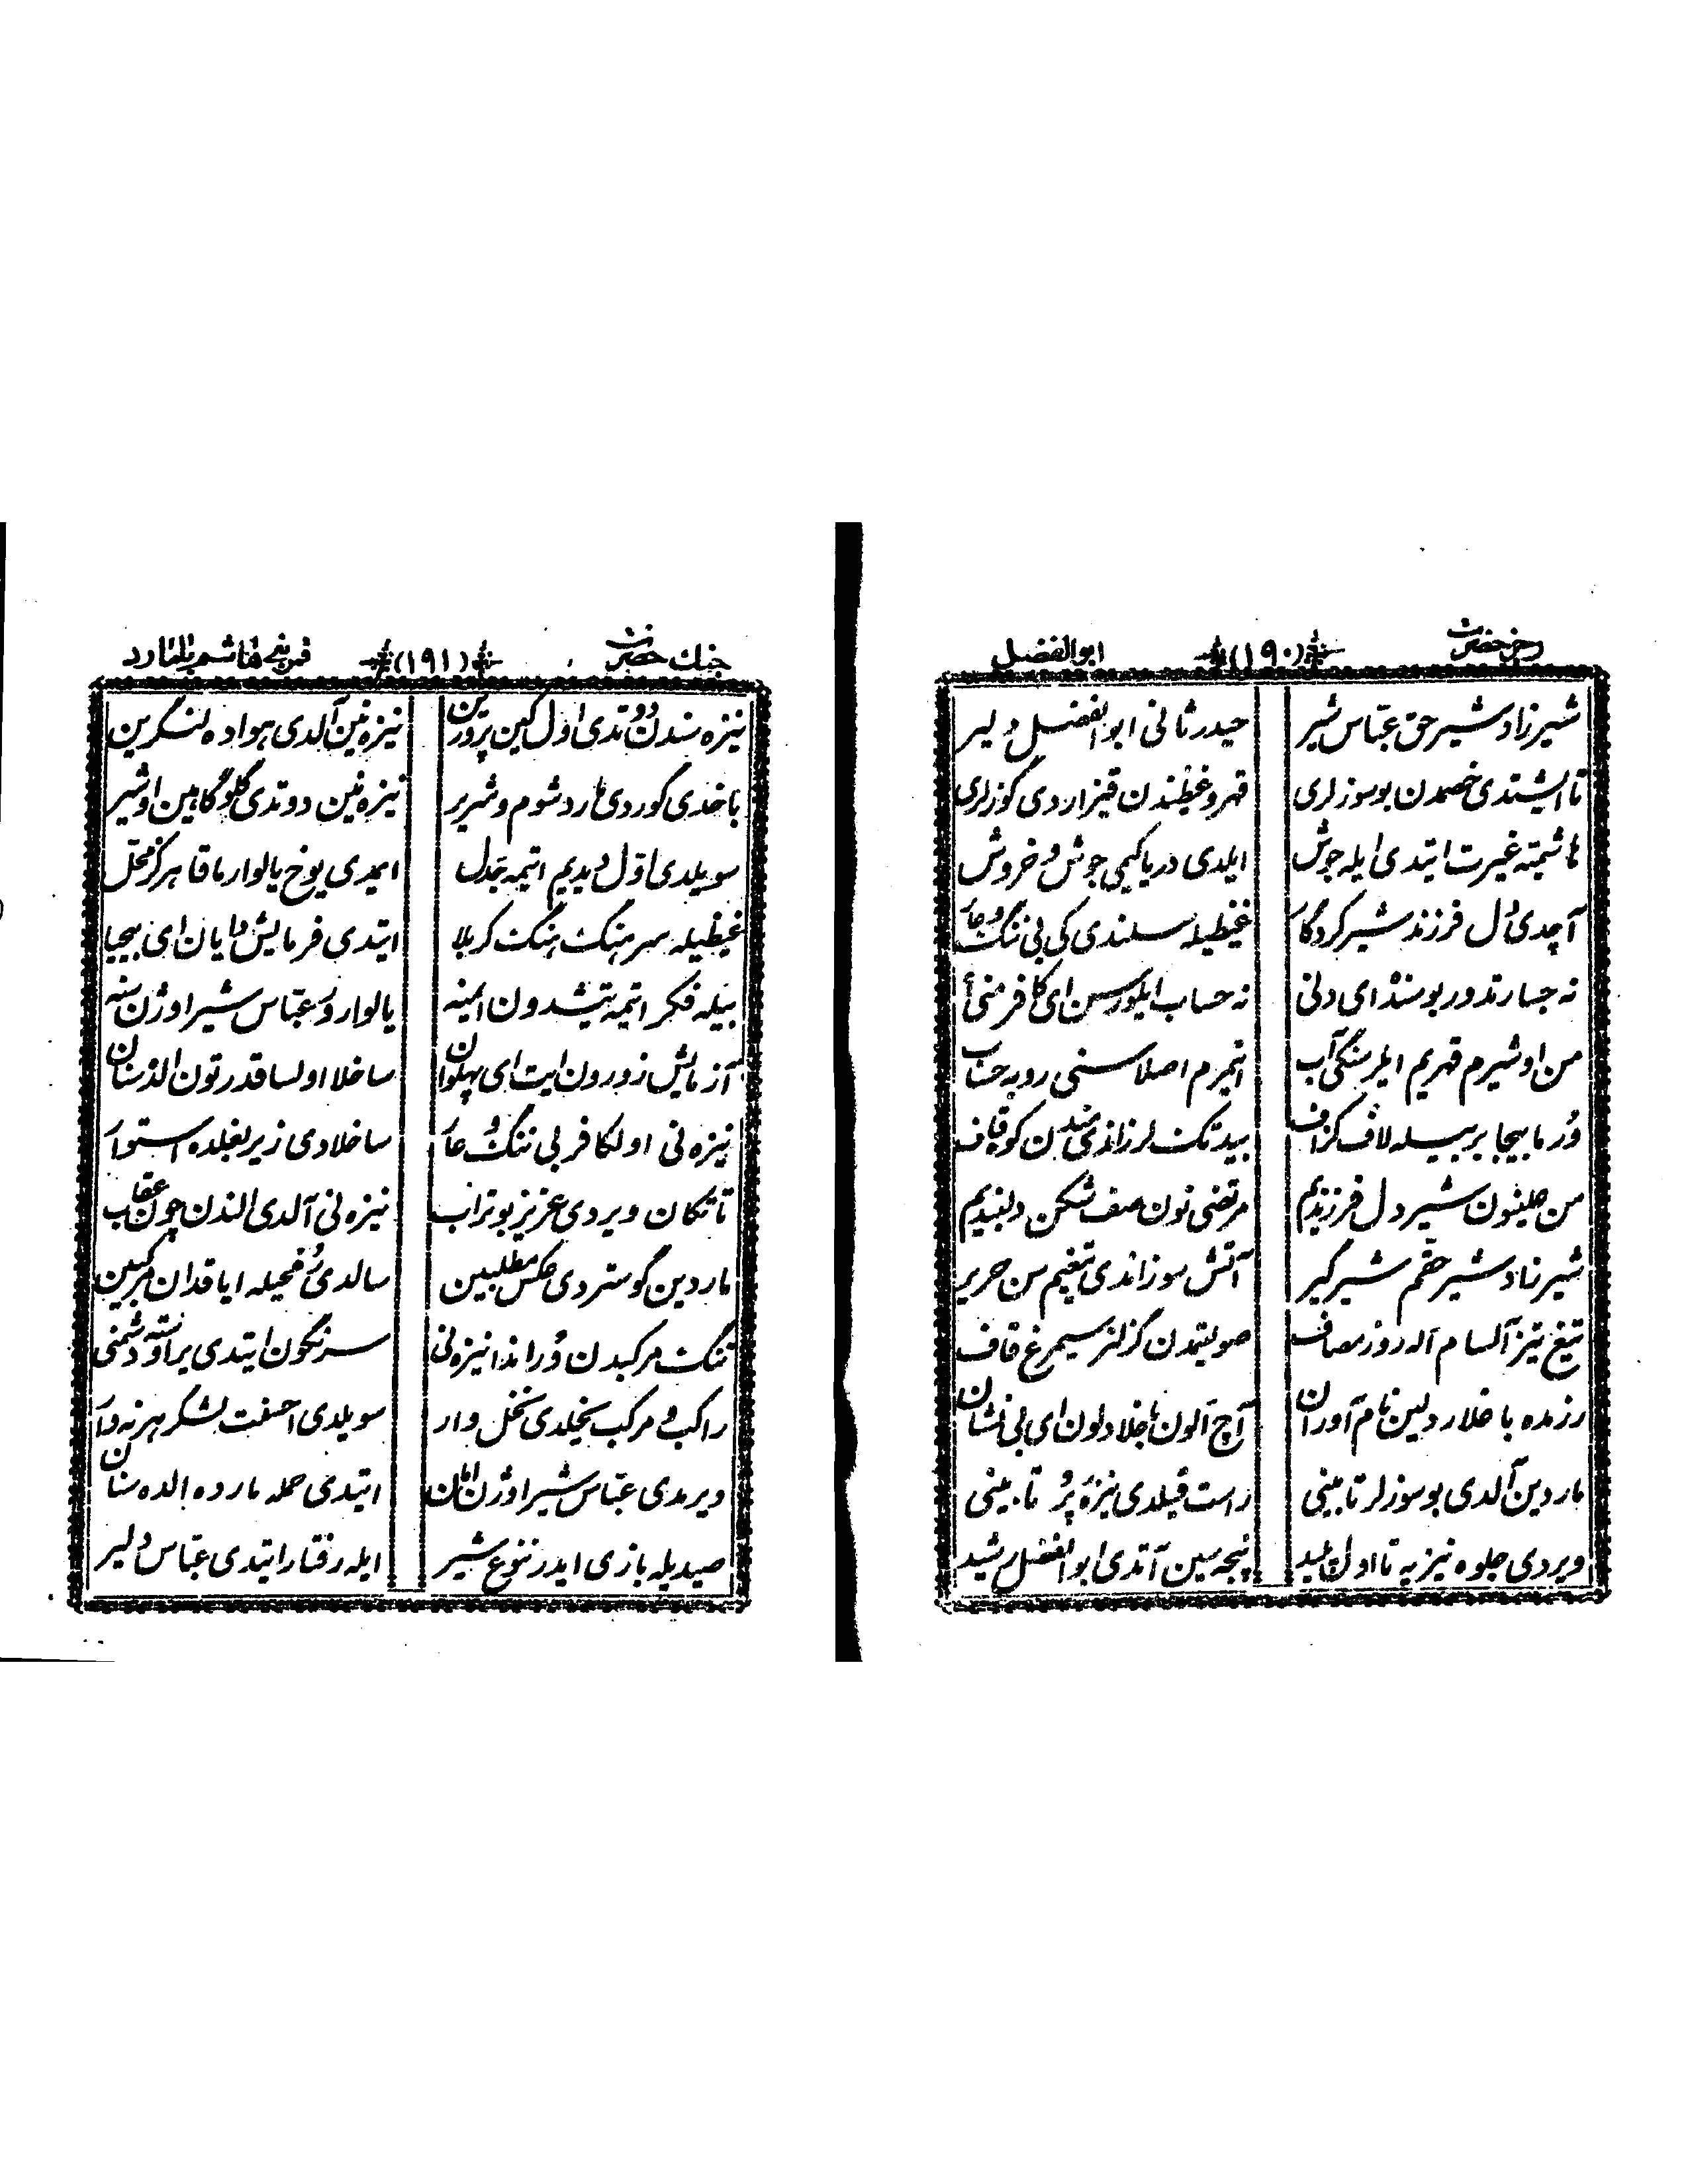 رجز حضرت (۱۹۰) ابوالفضل
شیرزاد شیر حق عبّاس شیر حیدر ثانی ابوالفضل دلیر
تا ایشتدی خصمدن بو سوزلری قهر و غیظندن قیزاردی گوزلری
هاشمیته غیرت ایتدی ایله جوش ایلدی دریا کیمی جوش و خروش
آچدی دل فرزند شیر کردگار غیظیله سسلندی کی بی ننگ و عار
نه جسارتدور بو سنده ای دنی نه حساب ایلورسن ای کافر منی
من او شیرم قهریم ایلر سنگی آب ایتمرم اصلا سنی روبه حساب
ور ما بیجا بر بیله لاف گزاف بید تک لرزاندی من‌دن کوه قاف
من حلینون شیر دل فرزندیم مرتضی نون صف شکن دلبندیم
شیر زاد شیر حقم شیر گیر آتش سوزاندی تیغیم سن حریر
تیغ تیز آلسام اله روز مصاف صولتمدن گزلنر سیمرغ قاف
رزمده باغلار دلین نام آوران آچ الون باغلا دلون ای بی نشان
مار دین آلدی بو سوزلر تا بینی راست قیلدی نیزه پر تا بینی
ویردی جلوه نیزیه تا اول پلید پنجه سین آتدی ابوالفضل رشید
جنك حضرت (۱۹۱) قمر بنی هاشم با مارد
نیزه سندن دوتدی اول کین پرورین نیزه نین آلدی هواده لنگرین
باخدی گوردی مارد شوم و شریر نیزه نین دوتدی گلوگاهین او شیر
سویلدی اول دیدیم ایتمه جدل ایمدی یوخ یالوار ماقا هرگز محل
غیظیله سرهنگ هنگ کربلا ایتدی فرمایش دایان ای بیحیا
بیله فکر ایتمه یتیشدون ایمنه یالوارور عبّاس شیر اوژن سنه
آزمایش زورون ایت ای پهلوان ساخلا اولسا قدرتون الده سنان
نیزه نی اول کافر بی ننگ و عار ساخلادی زیر بغلده استوار
تا تکان ویردی عزیز بوتراب نیزه نی آلدی الندن چون عقاب
ماردین گوستردی عکس مطلبین سالدی زخمیله ایاقدان مرکبین
تنگ مرکبدن وراندا نیزه نی سرنگون ایتدی یر اوسته دشمنی
راکب و مرکب یخیلدی نخل وار سویلدی احسنت لشکر هر نه وار
ویرمدی عبّاس شیر اوژن امان ایتدی حمله مارده الده سنان
صیدیله بازی ایدر نه نوع شیر ایله رفتار ایتدی عبّاس دلیر